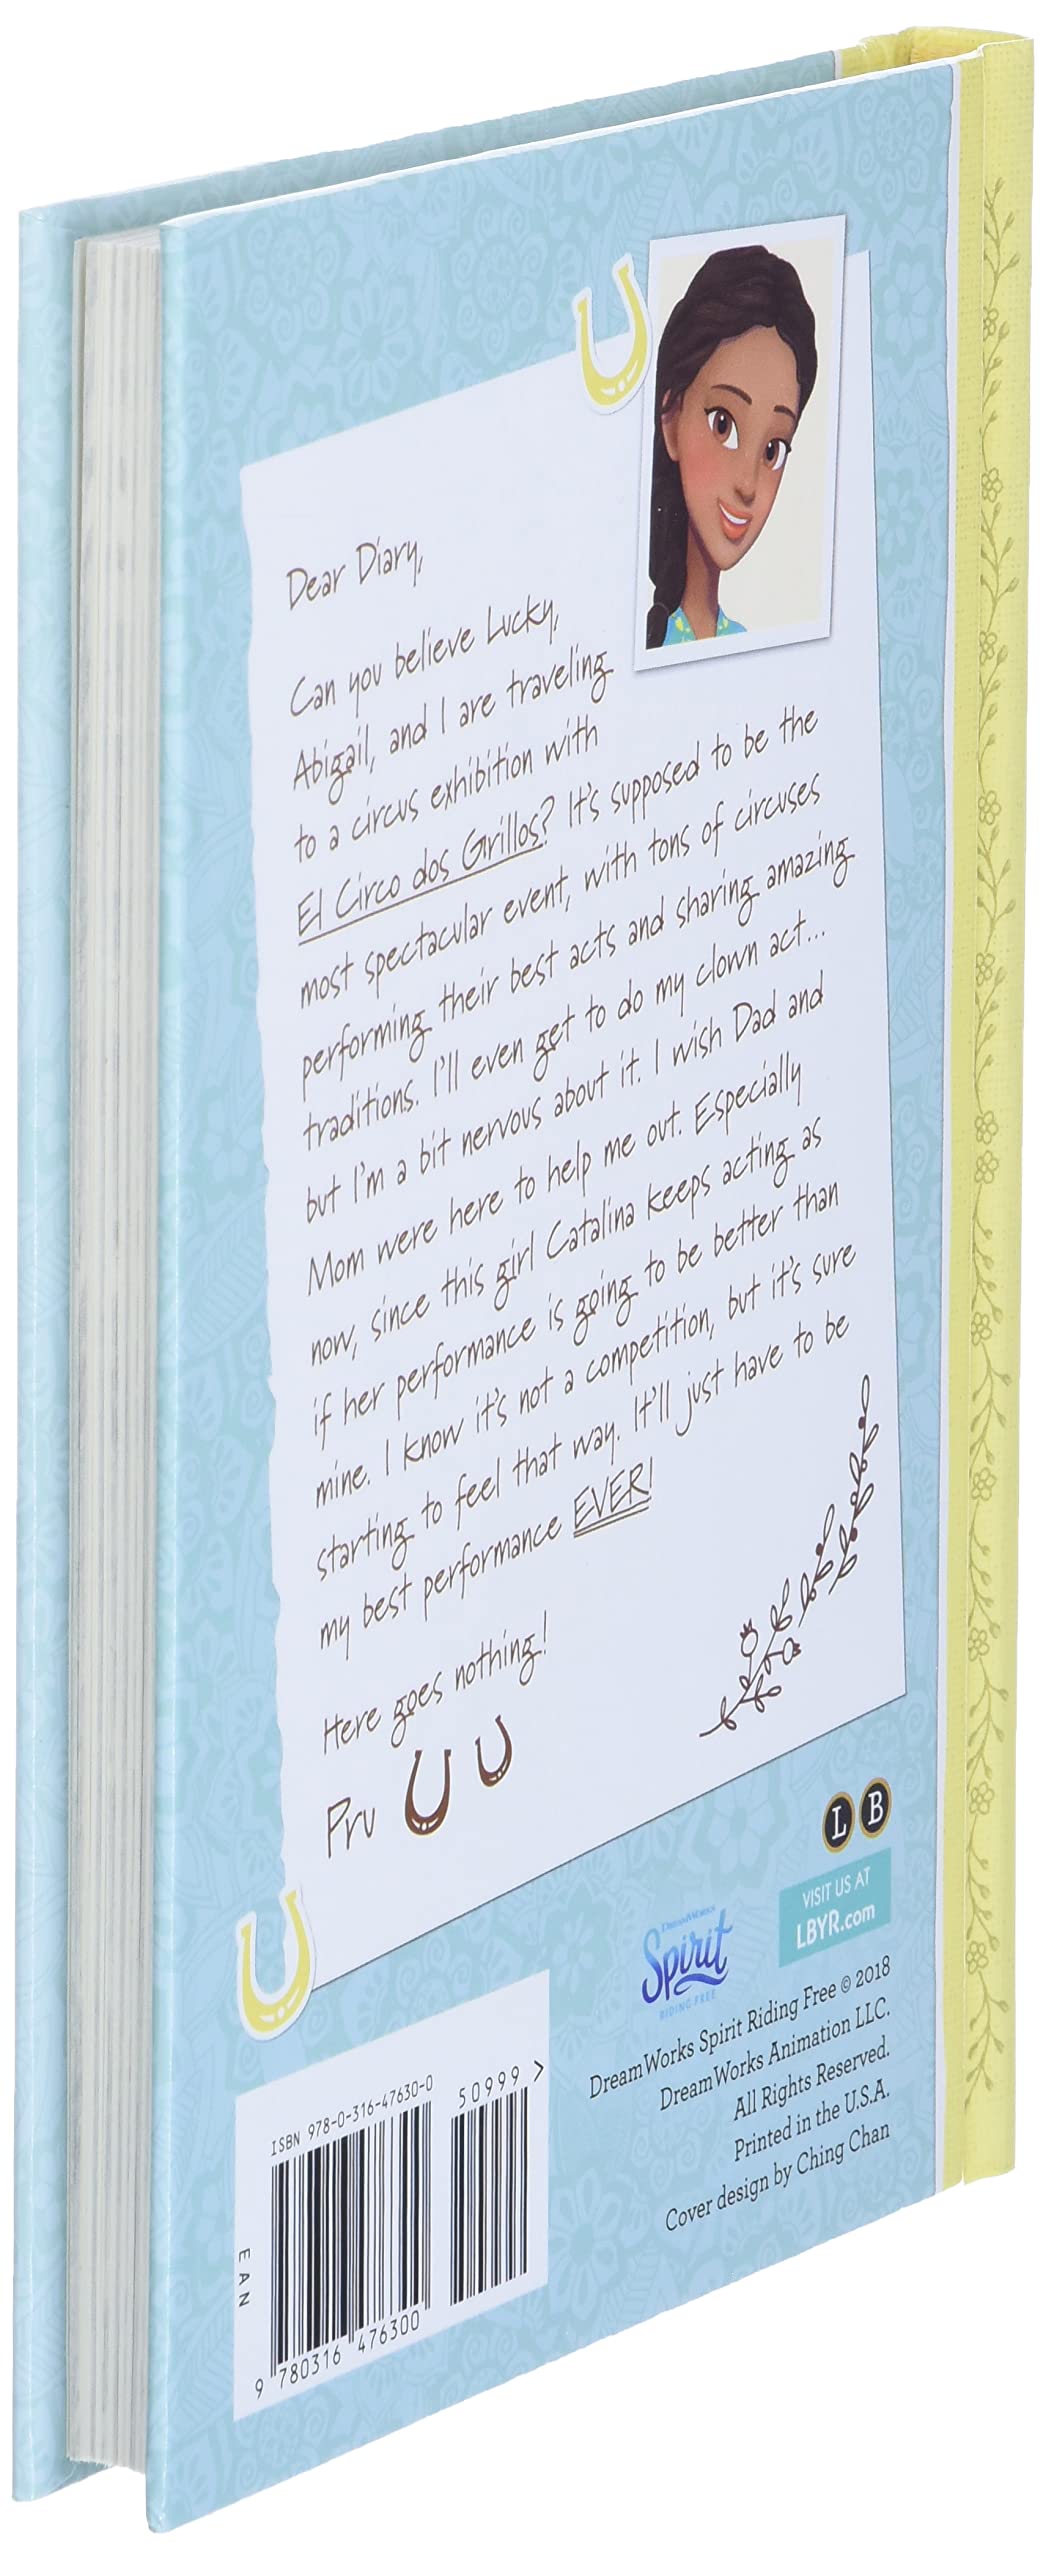 Dear Diary,
Can you believe Lucky,
Abigail, and I are traveling
to a circus exhibition with
El Circo dos Grillos? It's supposed to be the
most spectacular event, with tons of circuses
performing their best acts and sharing amazing
traditions. I'll even get to do my clown act...
but I'm a bit nervous about it. I wish Dad and
Mom were here to help me out. Especially
now, since this girl Catalina keeps acting as
if her performance is going to be better than
mine. I know it's not a competition, but it's sure
starting to feel that way. It'll just have to be
my best performance EVER!
Here goes nothing!
Pru
L B
VISIT US AT
LBYR.com
DREAMWORKS
Spirit
RIDING FREE
DreamWorks Spirit Riding Free © 2018
DreamWorks Animation LLC.
All Rights Reserved.
Printed in the U.S.A.
Cover design by Ching Chan
ISBN 978-0-316-47630-0
50999 >
EAN
9 780316 476300